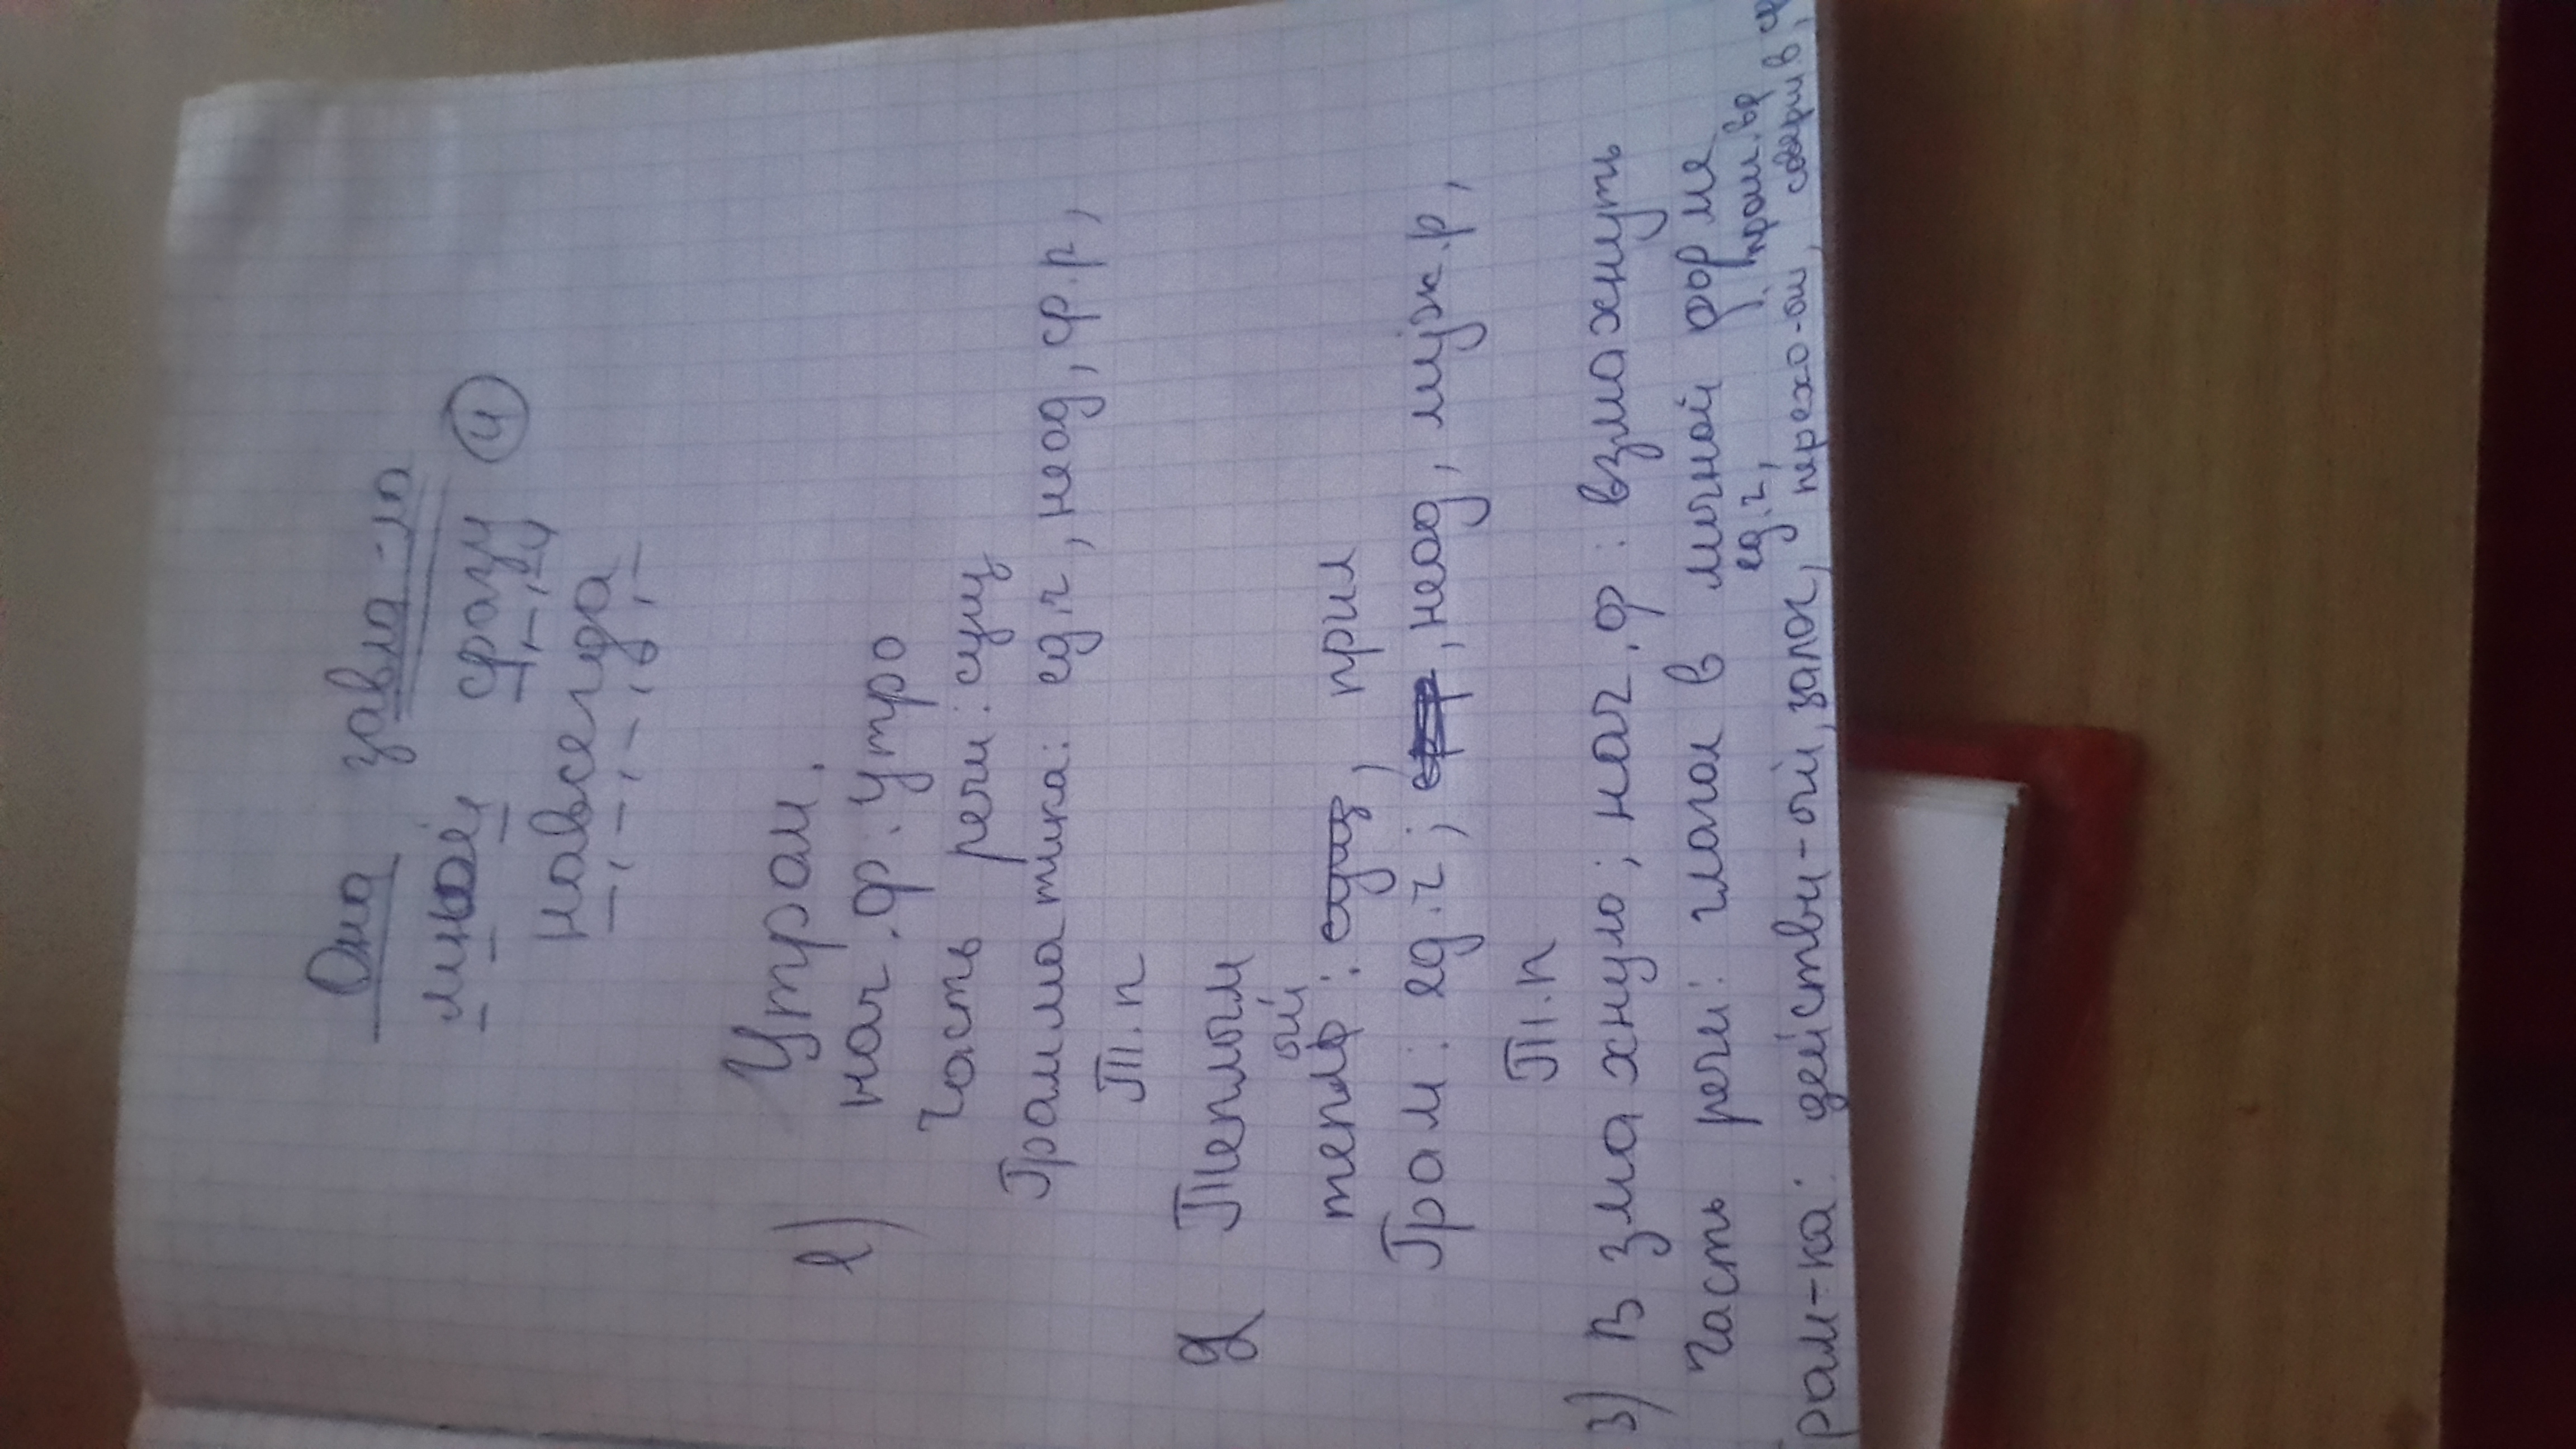 Она завла-ла
мной сразу 4
навсегда
1) Утром.
нач.ф: Утро
часть речи: сущ
Грамматика: ед.ч, неод, ср.р,
Т.п
2 Теплым
ый
тепл : сущ, прил
Грам: ед.ч; ср, неод, муж.р,
Т.п
3) Взмахнуло; нач.ф: взмахнуть
Часть речи: глагол в личной форме
ед.ч, прош.вр
рам-ка: действи-ый, залог, перехо-ый, соверш в, ср